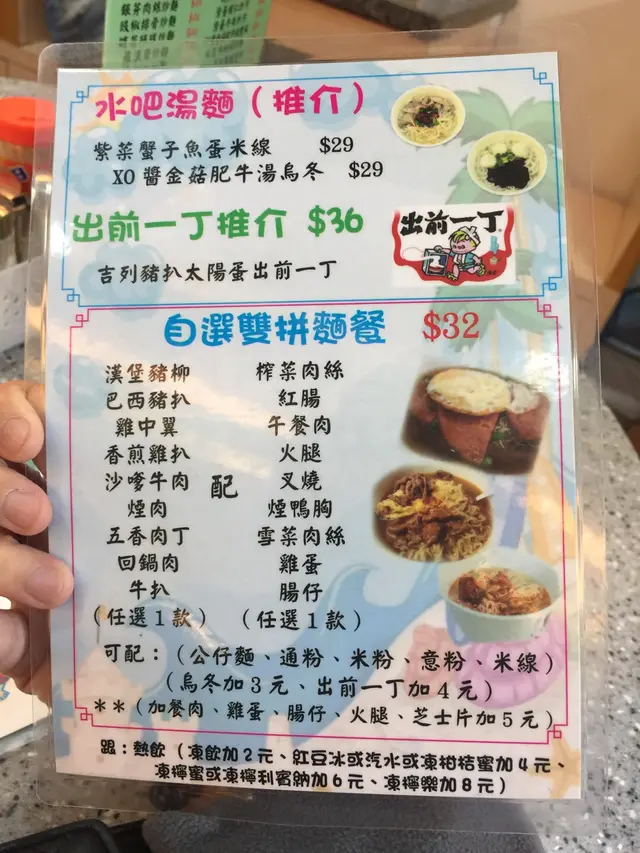 銀芽肉絲炒麵
豉椒排骨炒麵
水吧湯麵（推介）
紫菜蟹子魚蛋米線 $29
XO 醬金菇肥牛湯烏冬 $29
出前一丁推介 $36
出前一丁
吉列豬扒太陽蛋出前一丁
自選雙拼麵餐 $32
漢堡豬柳 榨菜肉絲
巴西豬扒 紅腸
雞中翼 午餐肉
香煎雞扒 火腿
沙嗲牛肉 配 叉燒
煙肉 煙鴨胸
五香肉丁 雪菜肉絲
回鍋肉 雞蛋
牛扒 腸仔
（任選1款） （任選1款）
可配：（公仔麵、通粉、米粉、意粉、米線）
（烏冬加3元、出前一丁加4元）
＊＊（加餐肉、雞蛋、腸仔、火腿、芝士片加5元）
跟：熱飲（凍飲加2元、紅豆冰或汽水或凍柑桔蜜加4元、
凍檸蜜或凍檸利賓納加6元、凍檸樂加8元）